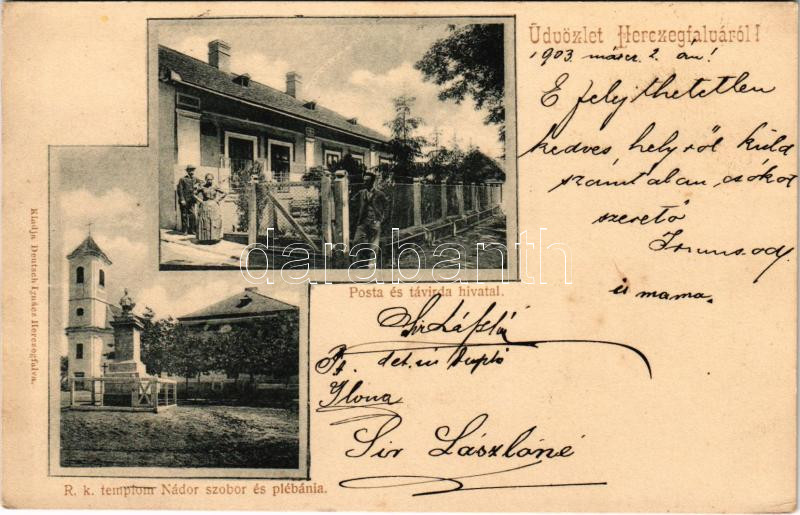 Üdvözlet Herczegfalváról!
1903. márcz. 2. án!
E felejthetetlen
kedves helyről küld
számtalan csókot
szerető
és mama.
Posta és távirda hivatal.
Ilona
Sir Lászlóné
R. k. templom Nádor szobor és plébánia.
Kiadja Deutsch Ignácz Herczegfalva.
darabanth